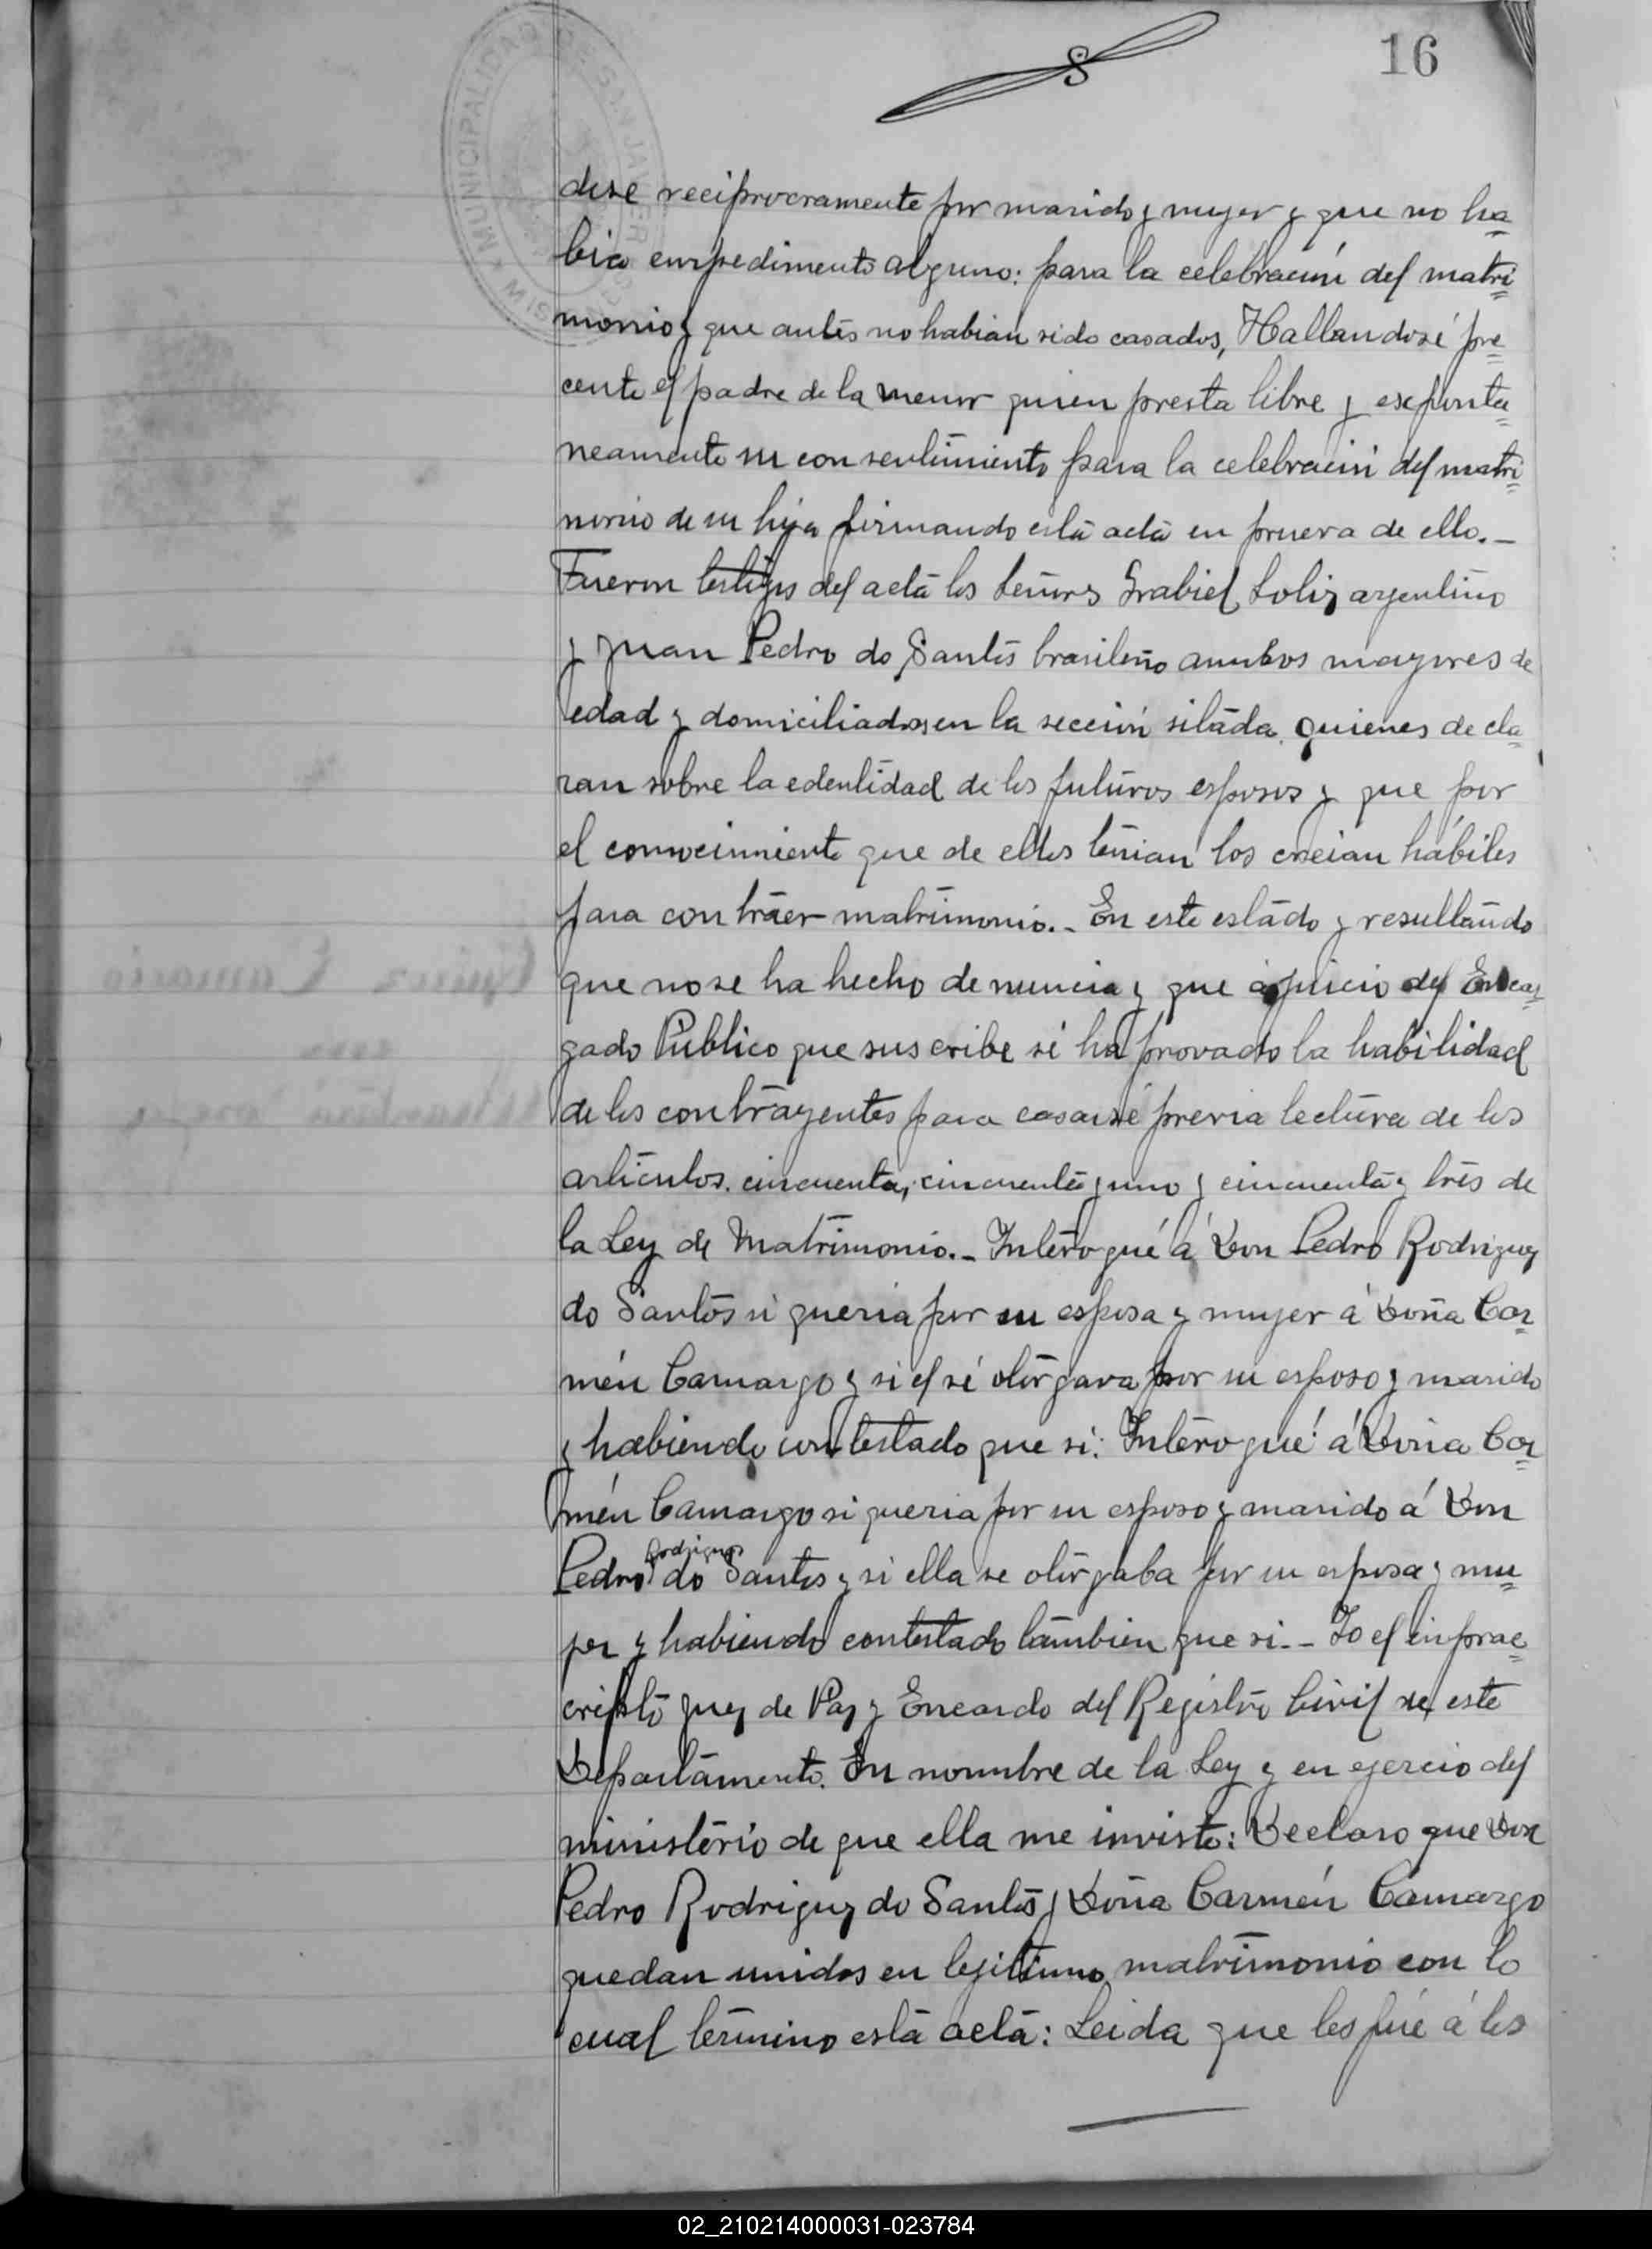 16
MUNICIPALIDAD DE SAN JAVIER
MISIONES
dose reciprocramente por marido y mujer y que no ha=
bia empedimento alguno: para la celebración del matri=
monio y que antes no habian sido casados, Hallandosé pre=
cente el padre de la menor quien presta libre y esponta=
neamente su consentimiento para la celebración del matri=
monio de su hija firmando esta acta en prueva de ello.-
Fueron testigos del acta los Señores Grabiel Soliz argentino
y Juan Pedro do Santos brasileño ambos mayores de
edad y domiciliados en la sección sitada quienes decla=
ran sobre la edentidad de los futuros esposos y que por
el conocimiento que de ellos tenian los creian hábiles
para contraer matrimonio.- En este estado y resultando
que no se ha hecho denuncia y que á juicio del Encar=
gado Público que suscribe sé ha provado la habilidad
de los contrayentes para casarsé previa lectura de los
articulos. cincuenta, cincuenta y uno y cincuenta y tres de
la Ley de Matrimonio.- Interogué á Don Pedro Rodriguez
do Santos si queria por su esposa y mujer á Doña Car=
mén Camargo y si el sé otorgava por su esposo y marido
y habiendo contestado que si: Interogué á Doña Car=
mén Camargo si queria por su esposo y marido á Don
Pedro Rodriguez do Santos y si ella se otorgaba por su esposa y mu=
jer y habiendo contestado tambien que si.- Yo el infrae=
cripto Juez de Paz y Encardo del Registro Civil de este
Departamento. En nombre de la Ley y en ejercio del
ministerio de que ella me inviste: Declaro que Don
Pedro Rodriguez do Santos y Doña Carmén Camargo
quedan unidos en legitimo matrimonio con lo
cual termino esta acta: Leida que les fué á los
02_210214000031-023784